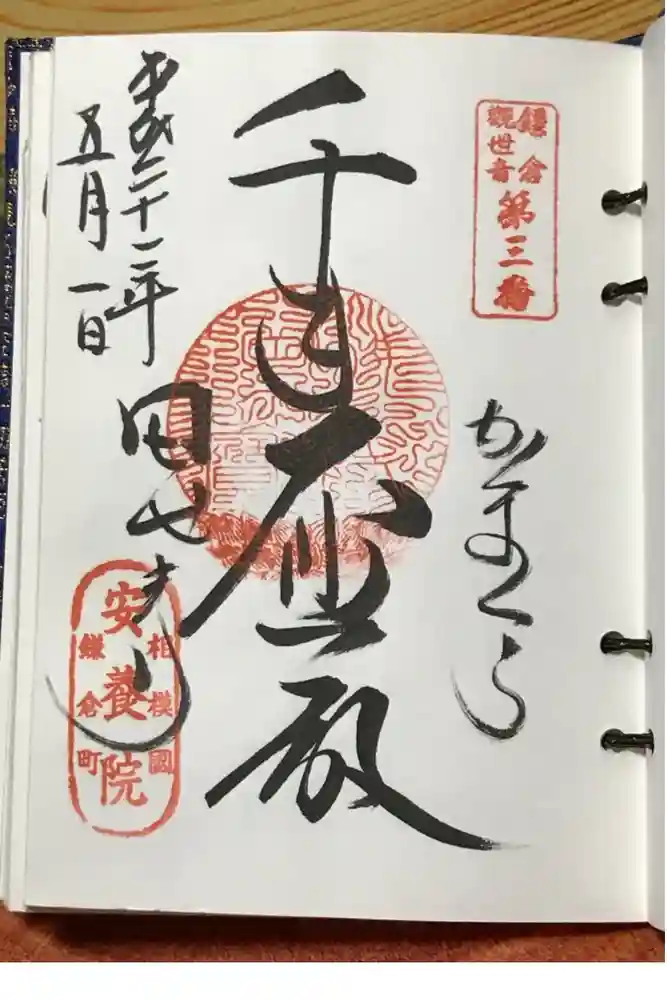 鎌倉
觀世音
第三番
かまくら
千手
殿
平成二十二年
五月一日
田
相模國
安養院
鎌倉町